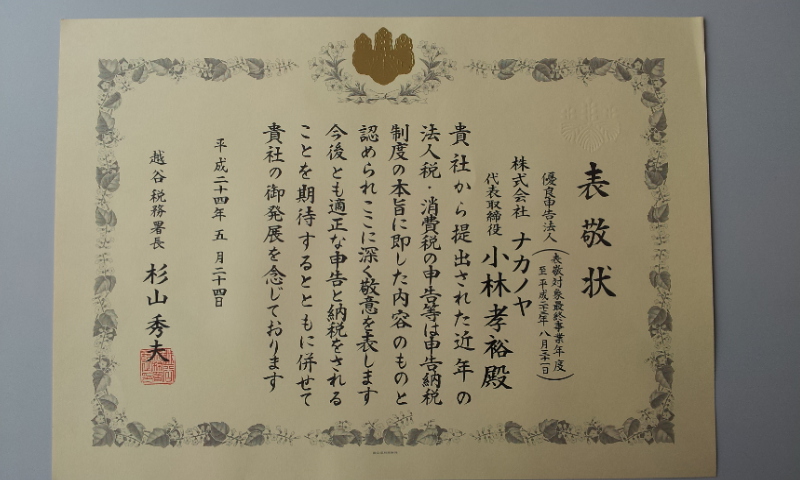 表敬状
優良申告法人
表敬対象最終事業年度
八月三十一日
株式会社 ナカノヤ
代表取締役 小林孝裕殿
貴社から提出された近年の
法人税・消費税の申告等は申告納税
制度の本旨に即した内容のものと
認められここに深く敬意を表します
今後とも適正な申告と納税をされる
ことを期待するとともに併せて
貴社の御発展を念じております
平成二十四年 五 月二十四日
越谷税務署長 杉山秀夫